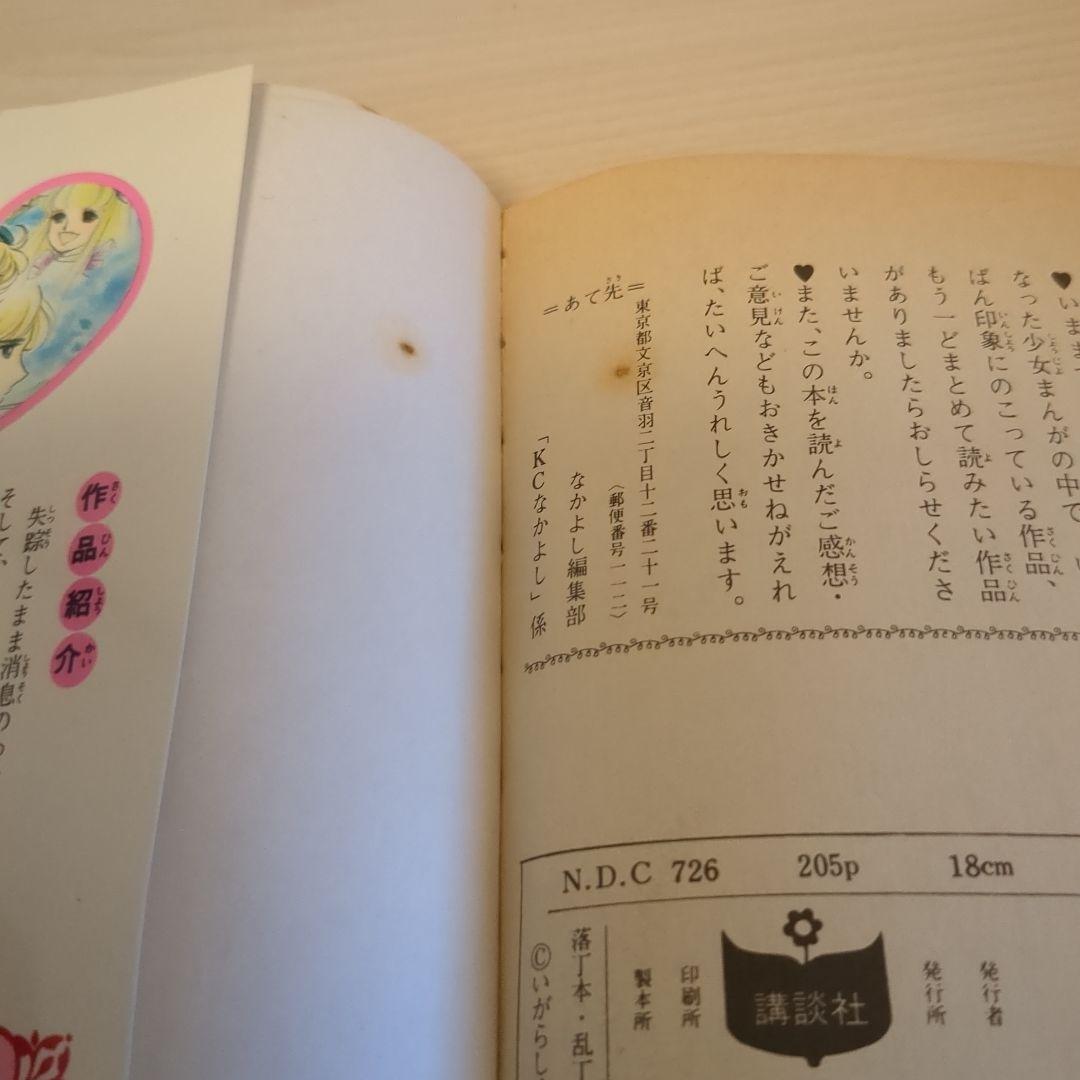 ♥いままで
なった少女まんがの中で、い
ばん印象にのこっている作品、
もう一どまとめて読みたい作品
がありましたらおしらせくださ
いませんか。
♥また、この本を読んだご感想・
ご意見などもおきかせねがえれ
ば、たいへんうれしく思います。
東京都文京区音羽二丁目十二番二十一号
〈郵便番号一一二〉
＝あて先＝
なかよし編集部
「KCなかよし」係
N.D.C 726 205p 18cm
発行者
発行所
講談社
印刷所
製本所
落丁本・乱丁
©いがらし
作品紹介
失踪したまま消息のつ
そして、